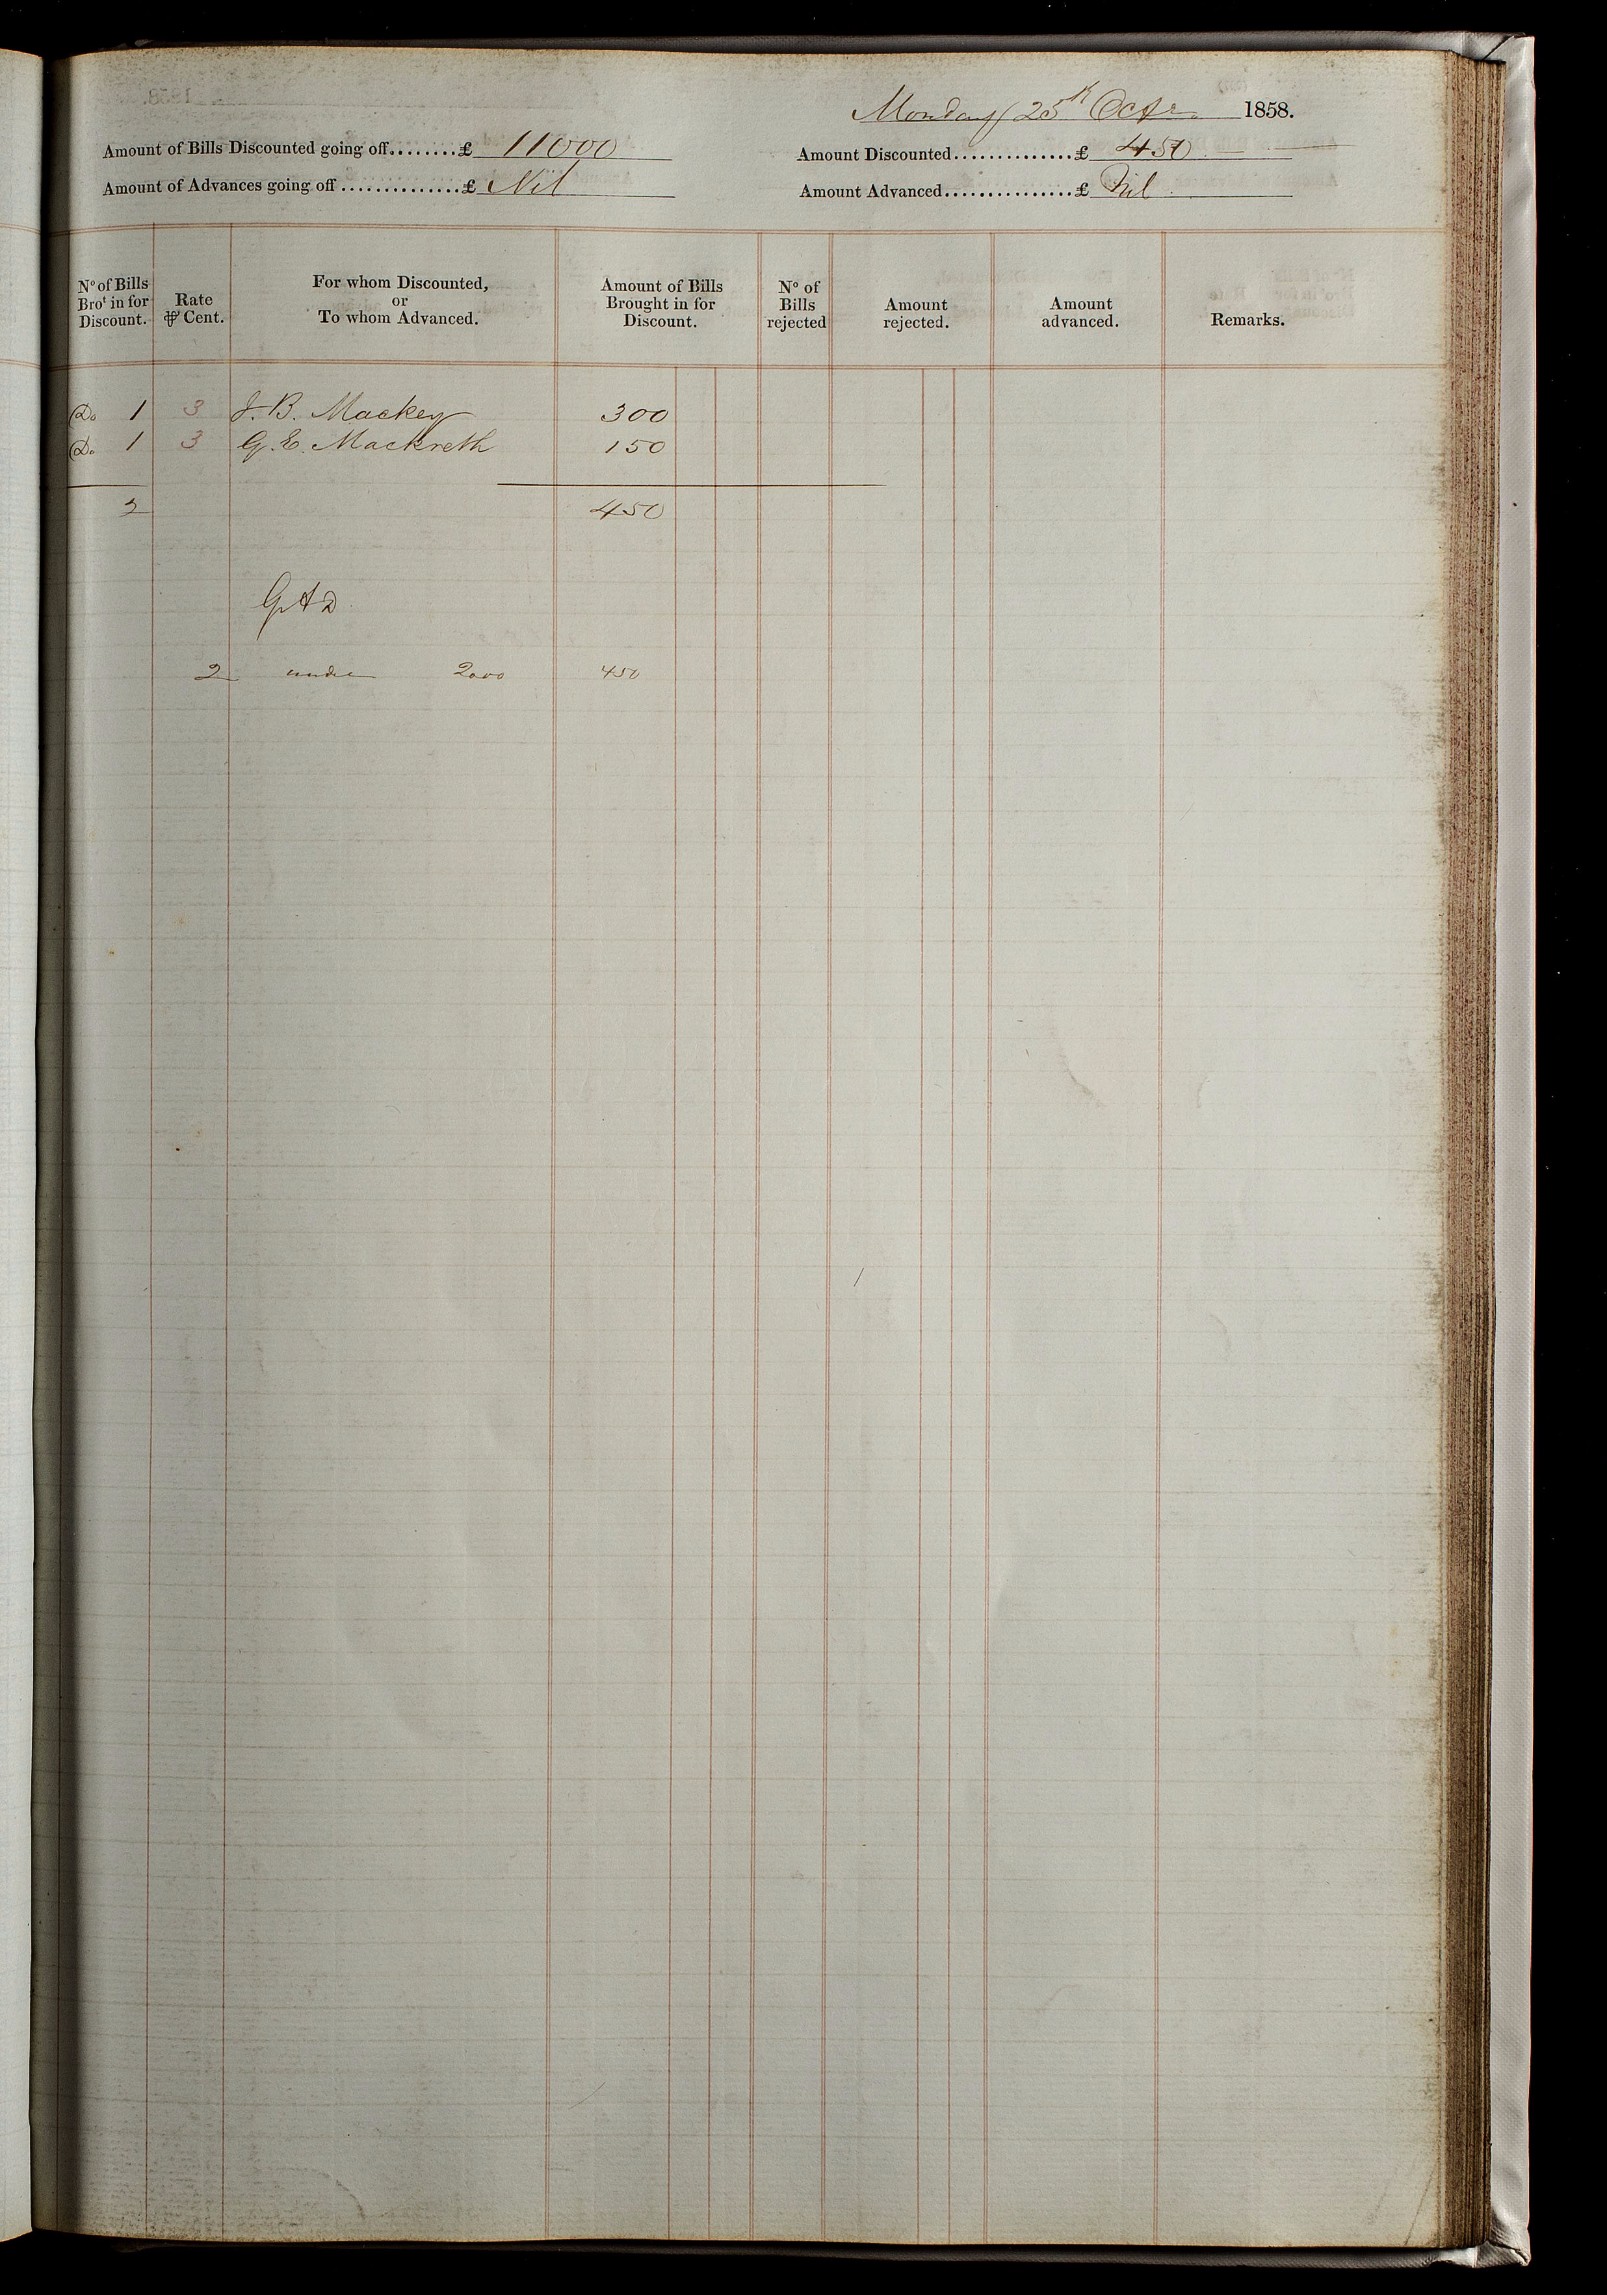 Monday 25th Octr. 1858.
Amount of Bills Discounted going off........£ 11000
Amount Discounted..............£ 450
Amount of Advances going off..............£ Nil
Amount Advanced...............£ Nil
No of Bills Brot in for Discount.
Rate ⅌ Cent.
For whom Discounted, or To whom Advanced.
Amount of Bills Brought in for Discount.
No of Bills rejected
Amount rejected.
Amount advanced.
Remarks.
Do 1 3 J. B. Mackey 300
Do 1 3 G. E. Mackreth 150
2 450
2 under 2000 450